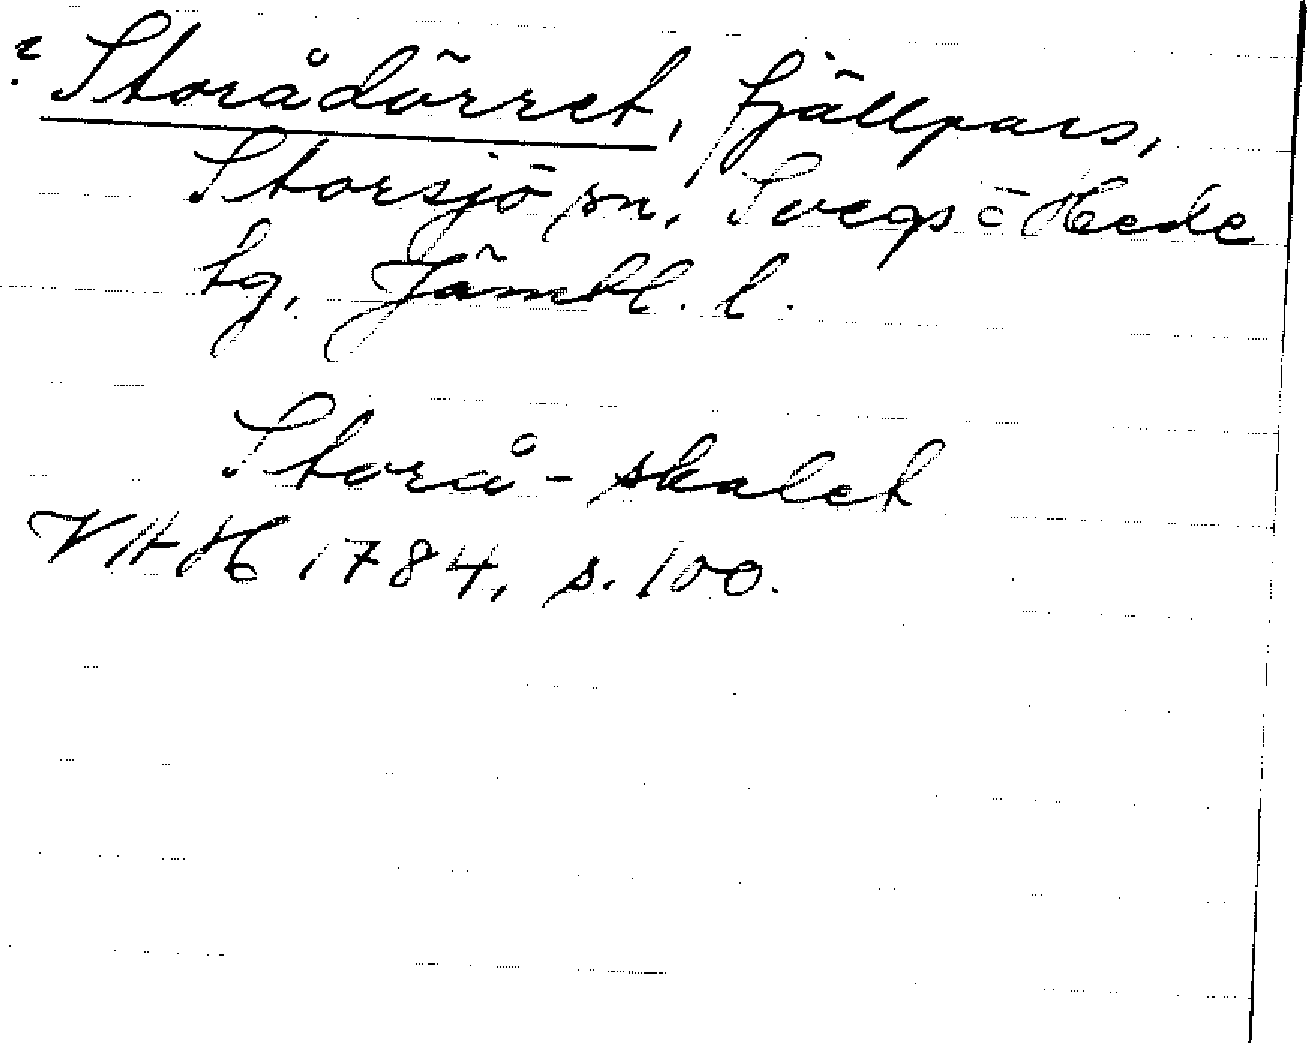 ? Storådörret, fjällpass,
Storsjö sn. Svegs o Hede
tg, Jämtl. l.
Storå-skalet
VHH 1784, s. 100.